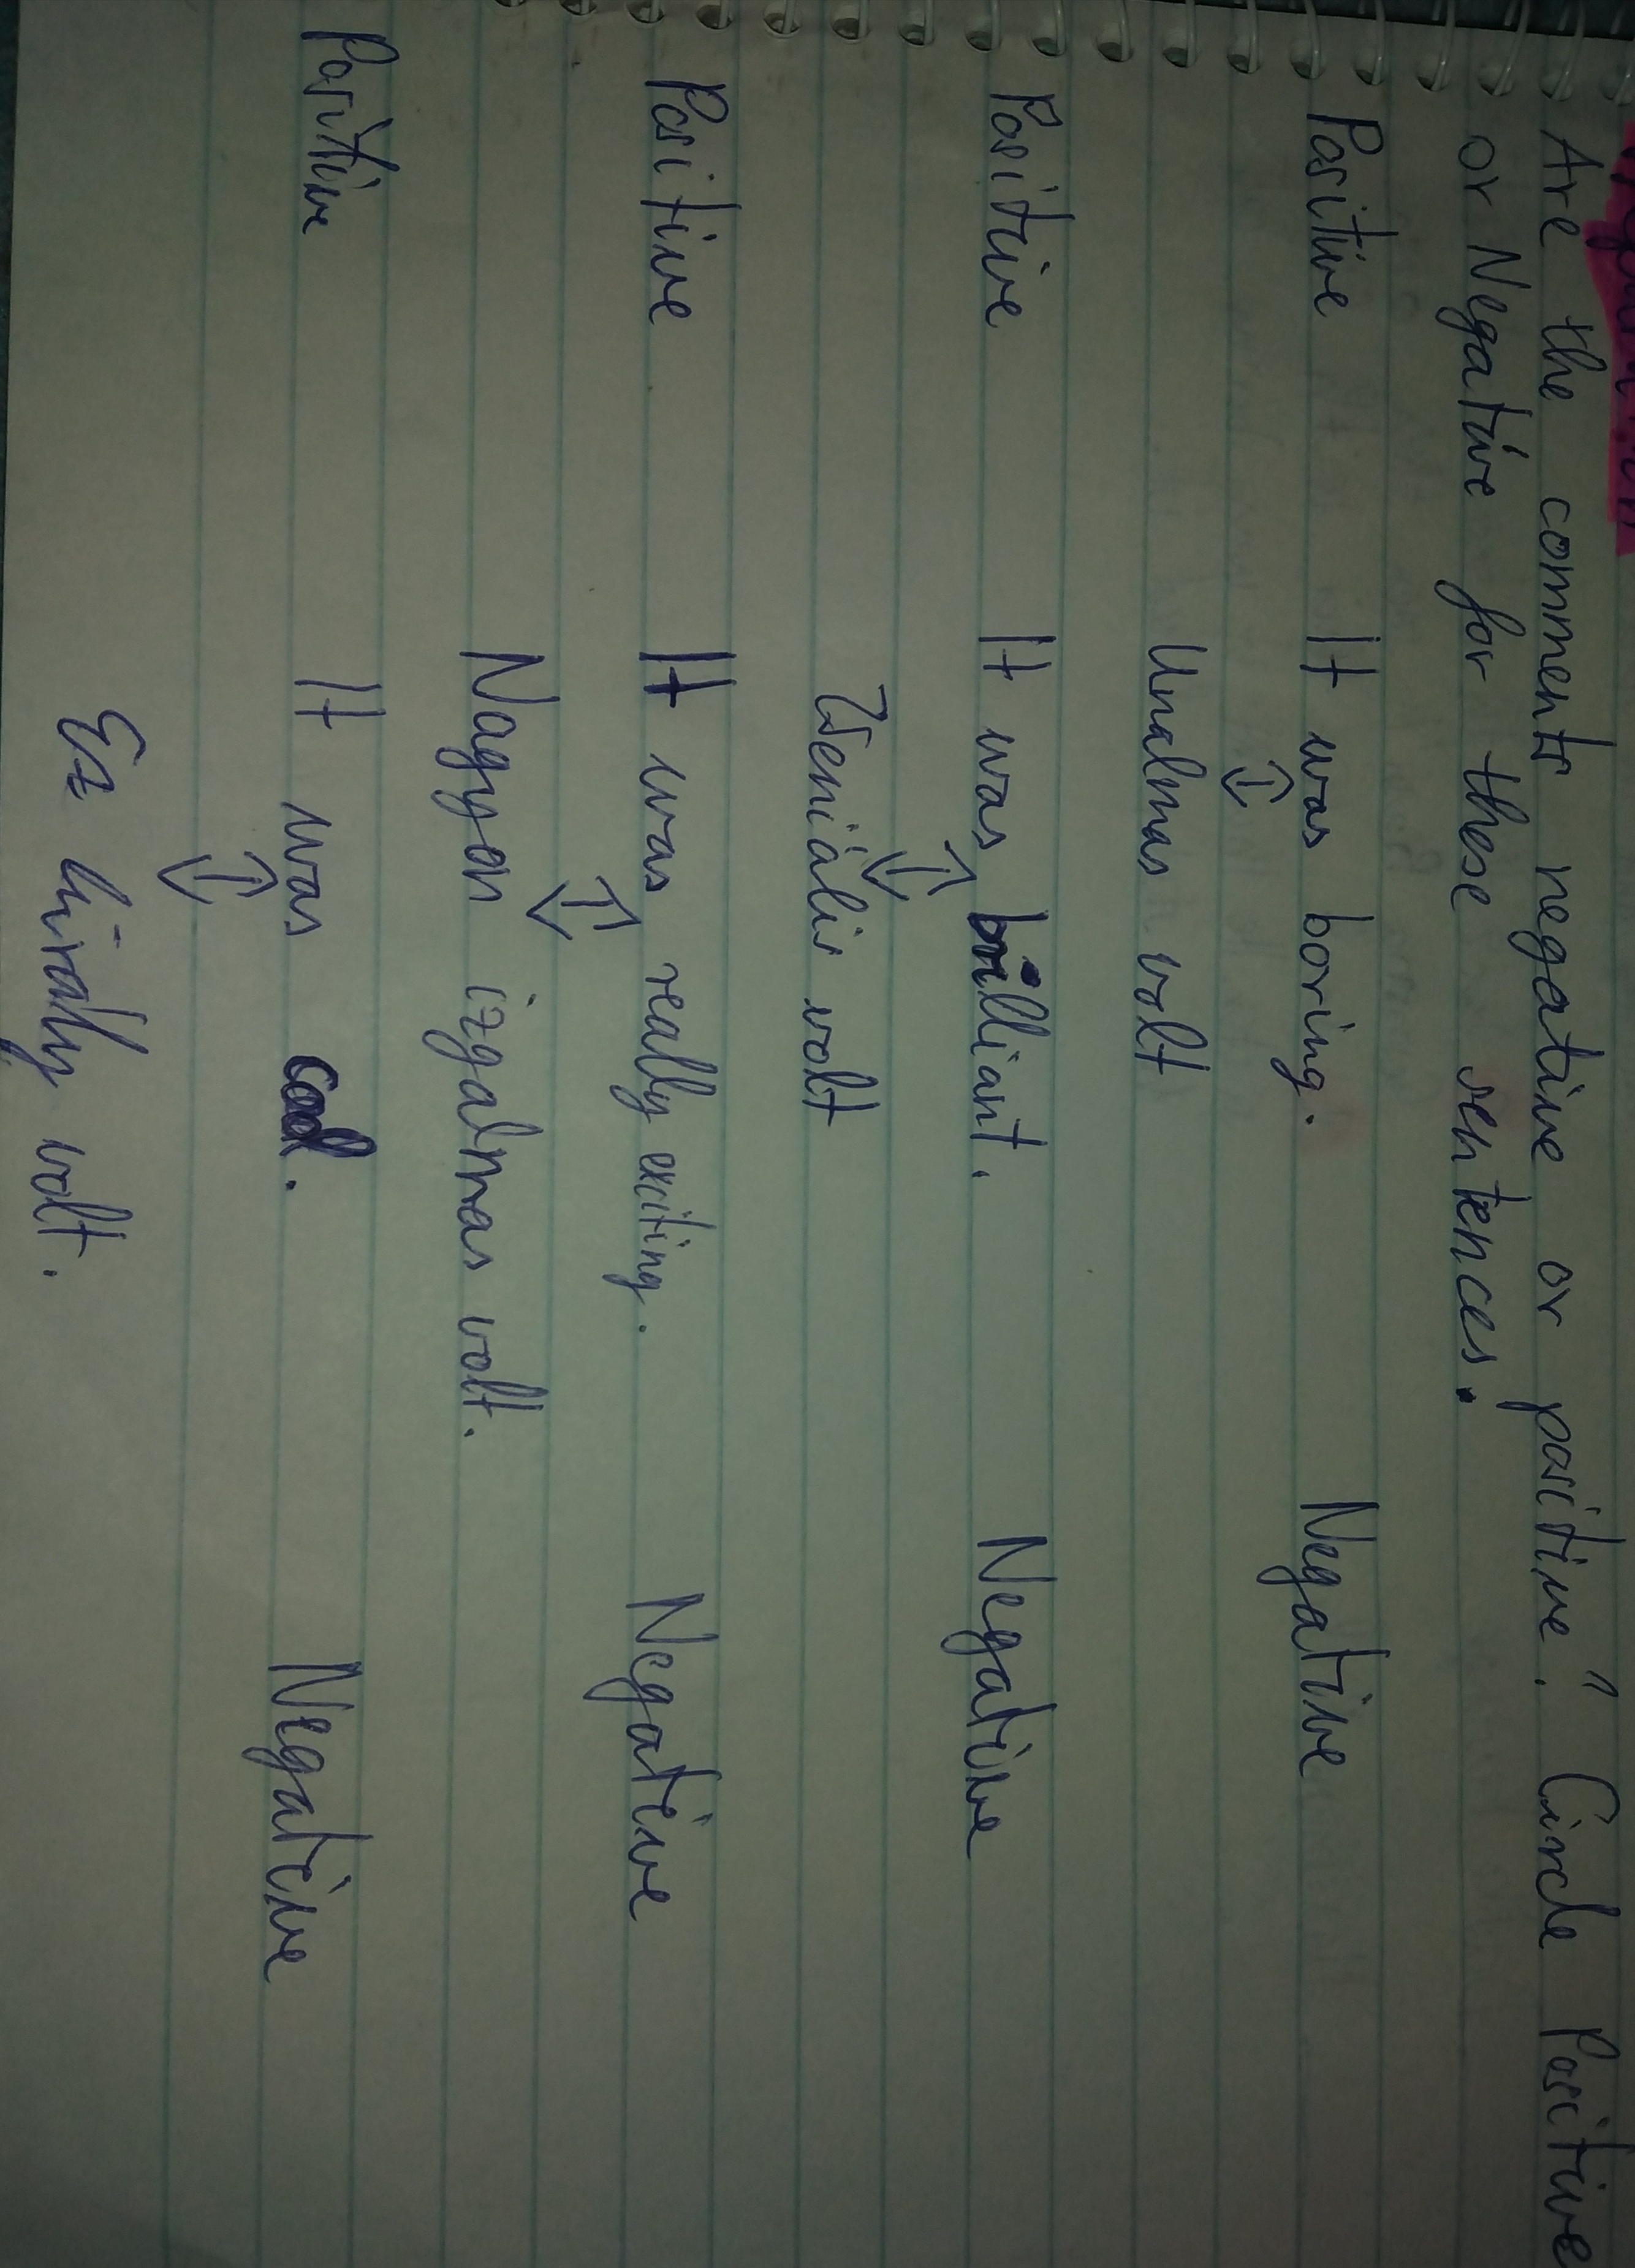 Are the comments negative or positive? Circle Positive
or Negative for these sentences.
Positive It was boring. Negative
Unalmas volt
Positive It was brilliant. Negative
Zseniális volt
Positive It was really exciting. Negative
Nagyon izgalmas volt.
Positive It was cool. Negative
Ez király volt.